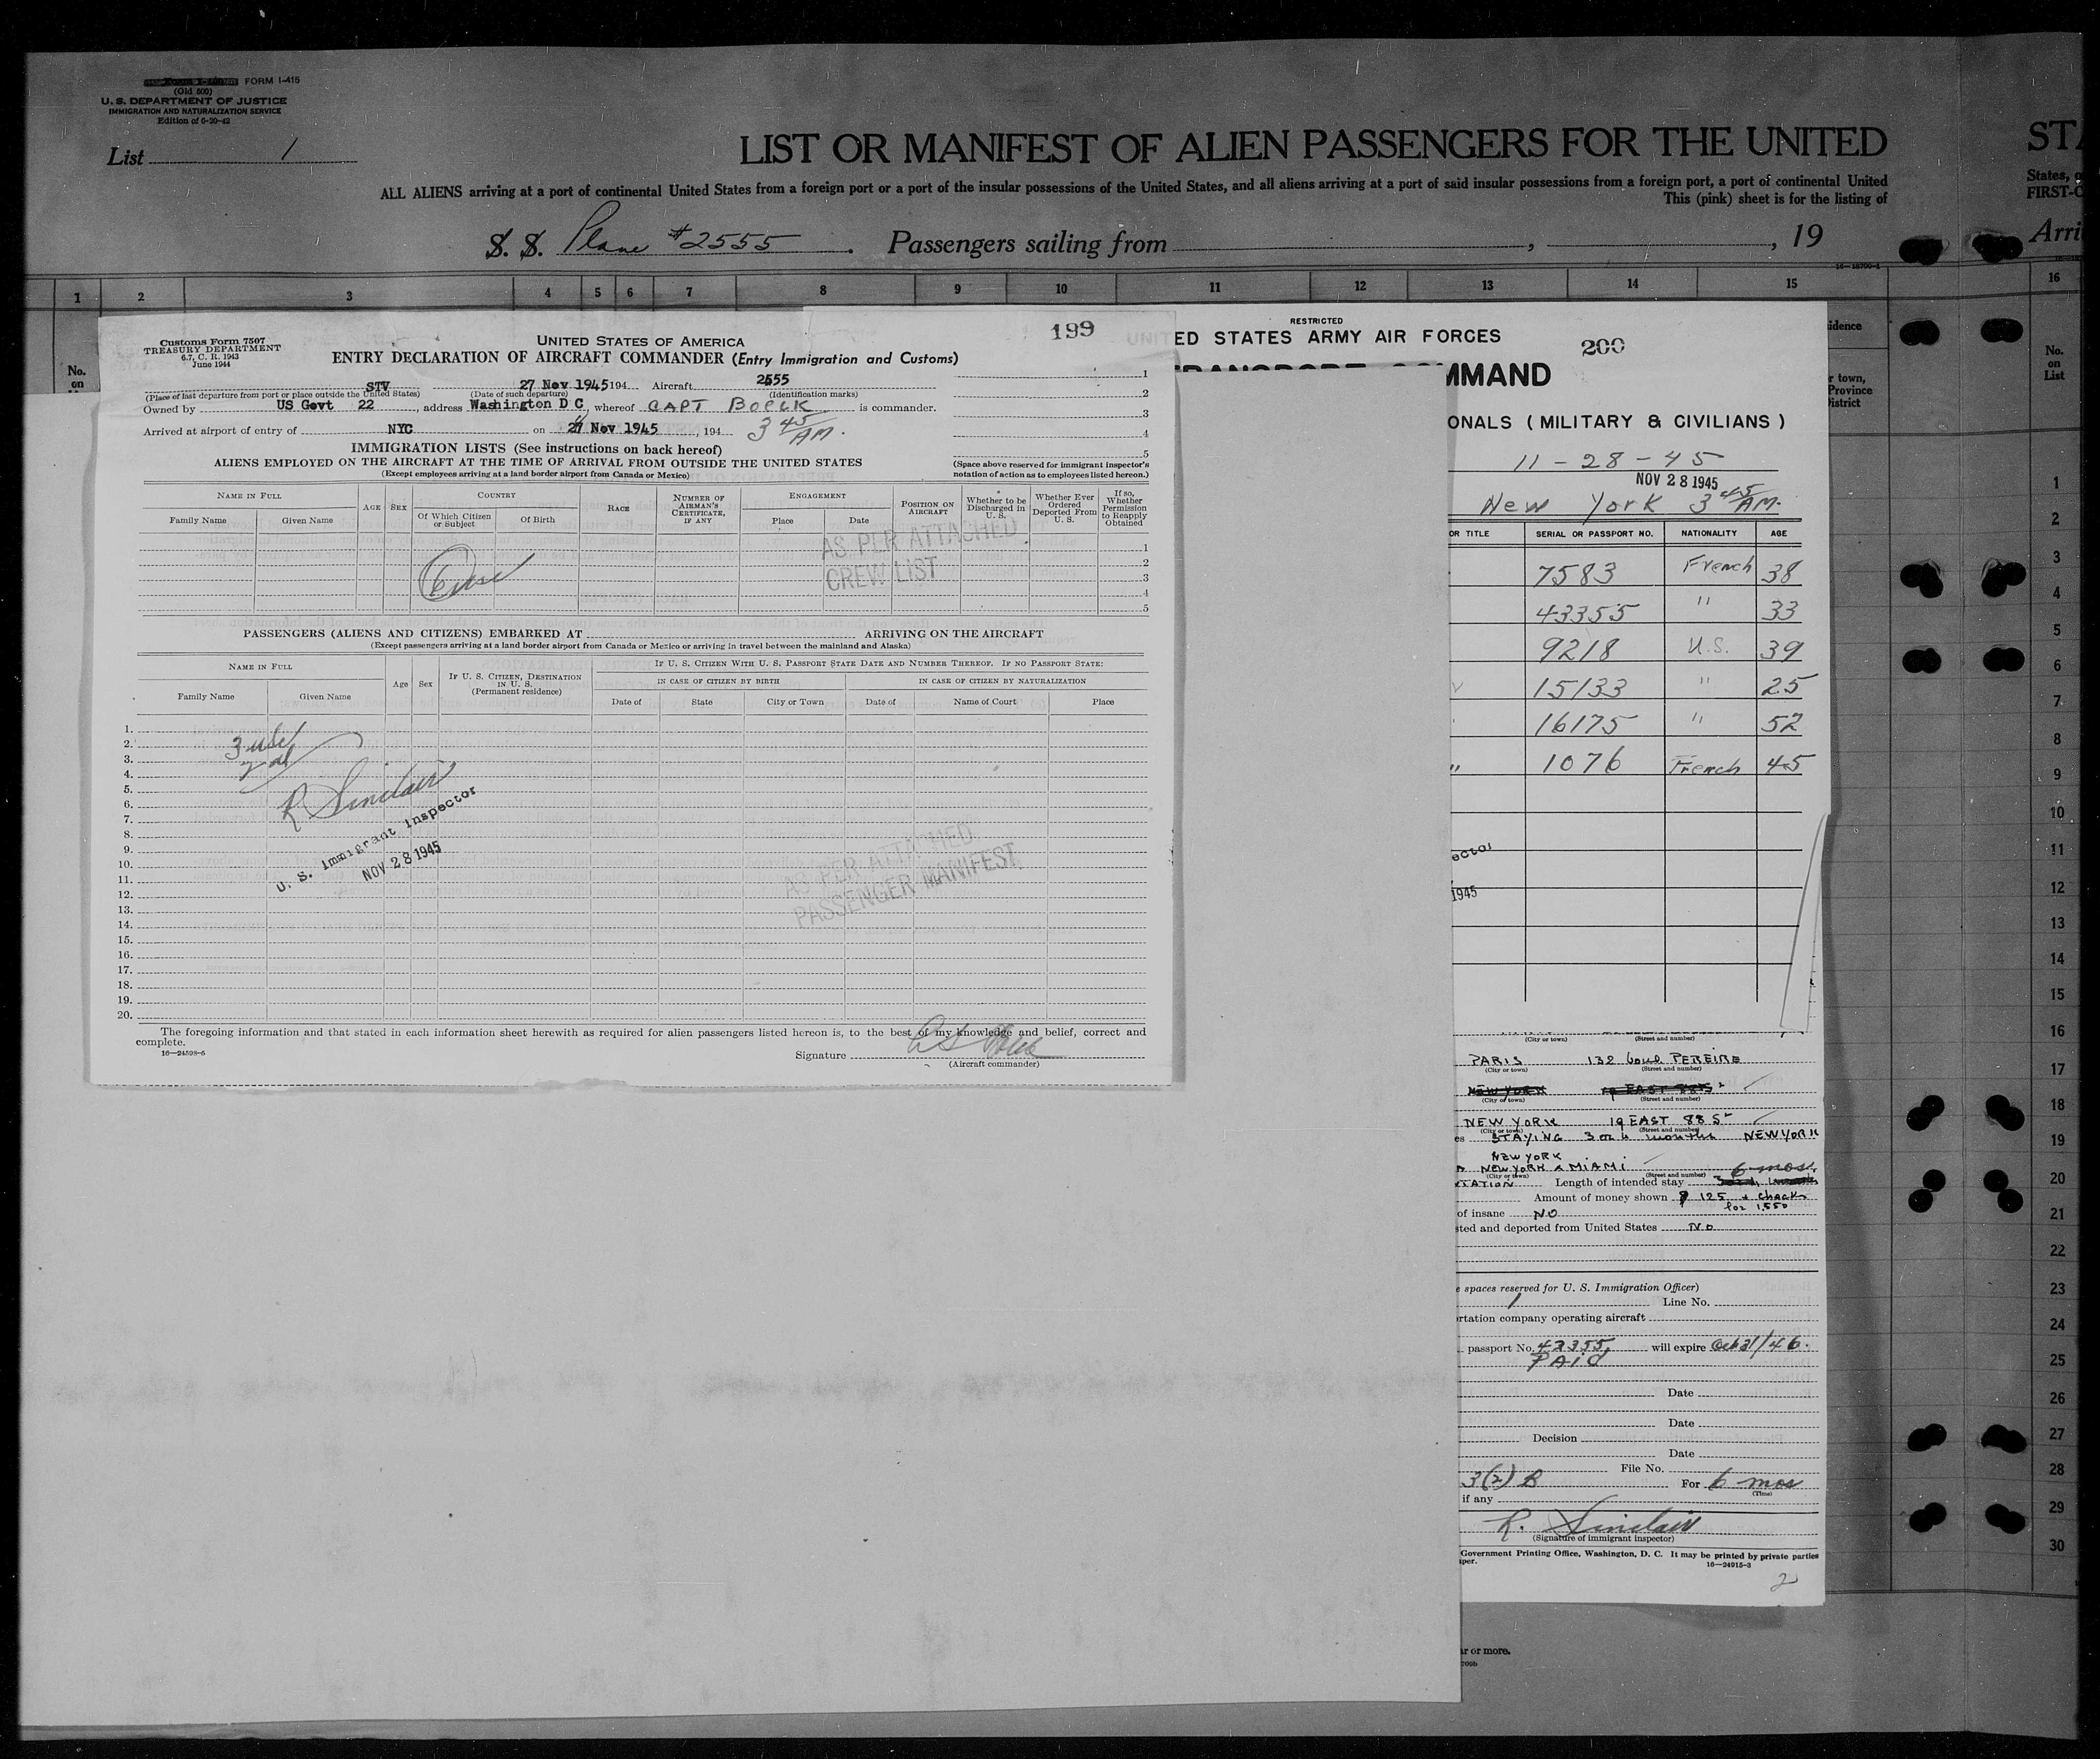 FORM I-415
(Old 500)
U. S. DEPARTMENT OF JUSTICE
IMMIGRATION AND NATURALIZATION SERVICE
Edition of 6-20-42
List 1
LIST OR MANIFEST OF ALIEN PASSENGERS FOR THE UNITED
ALL ALIENS arriving at a port of continental United States from a foreign port or a port of the insular possessions of the United States, and all aliens arriving at a port of said insular possessions from a foreign port, a port of continental United
This (pink) sheet is for the listing of
S. S. Plane #2555. Passengers sailing from , , 19
1 2 3 4 5 6 7 8 9 10 11 12 13 14 15
No.
on
199
Customs Form 7507
TREASURY DEPARTMENT
6.7, C. R. 1943
June 1944
UNITED STATES OF AMERICA
ENTRY DECLARATION OF AIRCRAFT COMMANDER (Entry Immigration and Customs)
STV 27 Nov 1945 194 Aircraft 2555
(Place of last departure from port or place outside the United States) (Date of such departure) (Identification marks)
Owned by US Govt 22, address Washington D C, whereof CAPT BOECK is commander.
Arrived at airport of entry of NYC on 27 Nov 1945, 194 3 45 AM.
1
2
3
4
5
IMMIGRATION LISTS (See instructions on back hereof)
ALIENS EMPLOYED ON THE AIRCRAFT AT THE TIME OF ARRIVAL FROM OUTSIDE THE UNITED STATES
(Except employees arriving at a land border airport from Canada or Mexico)
(Space above reserved for immigrant inspector's
notation of action as to employees listed hereon.)
NAME IN FULL
Family Name Given Name
AGE
SEX
COUNTRY
Of Which Citizen or Subject
Of Birth
RACE
NUMBER OF AIRMAN'S CERTIFICATE, IF ANY
ENGAGEMENT
Place Date
POSITION ON AIRCRAFT
Whether to be Discharged in U. S.
Whether Ever Ordered Deported From U. S.
If so, Whether Permission to Reapply Obtained
AS PER ATTACHED
CREW LIST
1
2
3
4
5
PASSENGERS (ALIENS AND CITIZENS) EMBARKED AT ARRIVING ON THE AIRCRAFT
(Except passengers arriving at a land border airport from Canada or Mexico or arriving in travel between the mainland and Alaska)
NAME IN FULL
Family Name Given Name
Age
Sex
IF U. S. CITIZEN, DESTINATION IN U. S.
(Permanent residence)
IF U. S. CITIZEN WITH U. S. PASSPORT STATE DATE AND NUMBER THEREOF. IF NO PASSPORT STATE:
IN CASE OF CITIZEN BY BIRTH IN CASE OF CITIZEN BY NATURALIZATION
Date of State City or Town Date of Name of Court Place
1.
2.
3.
4.
5.
6.
7.
8.
9.
10.
11.
12.
13.
14.
15.
16.
17.
18.
19.
20.
R Sinclair
U. S. Immigrant Inspector
NOV 28 1945
AS PER ATTACHED
PASSENGER MANIFEST
The foregoing information and that stated in each information sheet herewith as required for alien passengers listed hereon is, to the best of my knowledge and belief, correct and
complete.
16—24598-6
Signature
(Aircraft commander)
RESTRICTED
UNITED STATES ARMY AIR FORCES
200
TRANSPORT COMMAND
ONALS (MILITARY & CIVILIANS)
11-28-45
NOV 28 1945
New York 3 45 AM.
OR TITLE SERIAL OR PASSPORT NO. NATIONALITY AGE
7583 French 38
43355 " 33
9218 U.S. 39
15133 " 25
16175 " 52
1076 French 45
ector
1945
(City or town) (Street and number)
PARIS 132 boul PEREIRE
(City or town) (Street and number)
(City or town) (Street and number)
NEW YORK 19 EAST 88 St
(City or town) (Street and number)
STAYING 3 or 4 months NEW YORK
NEW YORK
NEW YORK & MIAMI
(City or town) (Street and number)
6 mos.
Length of intended stay
Amount of money shown $ 125 + check
for 1,550
of insane NO
sted and deported from United States No
e spaces reserved for U. S. Immigration Officer)
1 Line No.
rtation company operating aircraft
passport No. 43355, will expire Oct 31/46.
PAID
Date
Date
Decision
Date
File No.
3(2) B For 6 mos
(Time)
if any
R. Sinclair
(Signature of immigrant inspector)
Government Printing Office, Washington, D. C. It may be printed by private parties
16—24915-3
2
ar or more.
idence
r town,
Province
District
STA
States, o
FIRST-C
Arri
16
No.
on
List
1
2
3
4
5
6
7
8
9
10
11
12
13
14
15
16
17
18
19
20
21
22
23
24
25
26
27
28
29
30